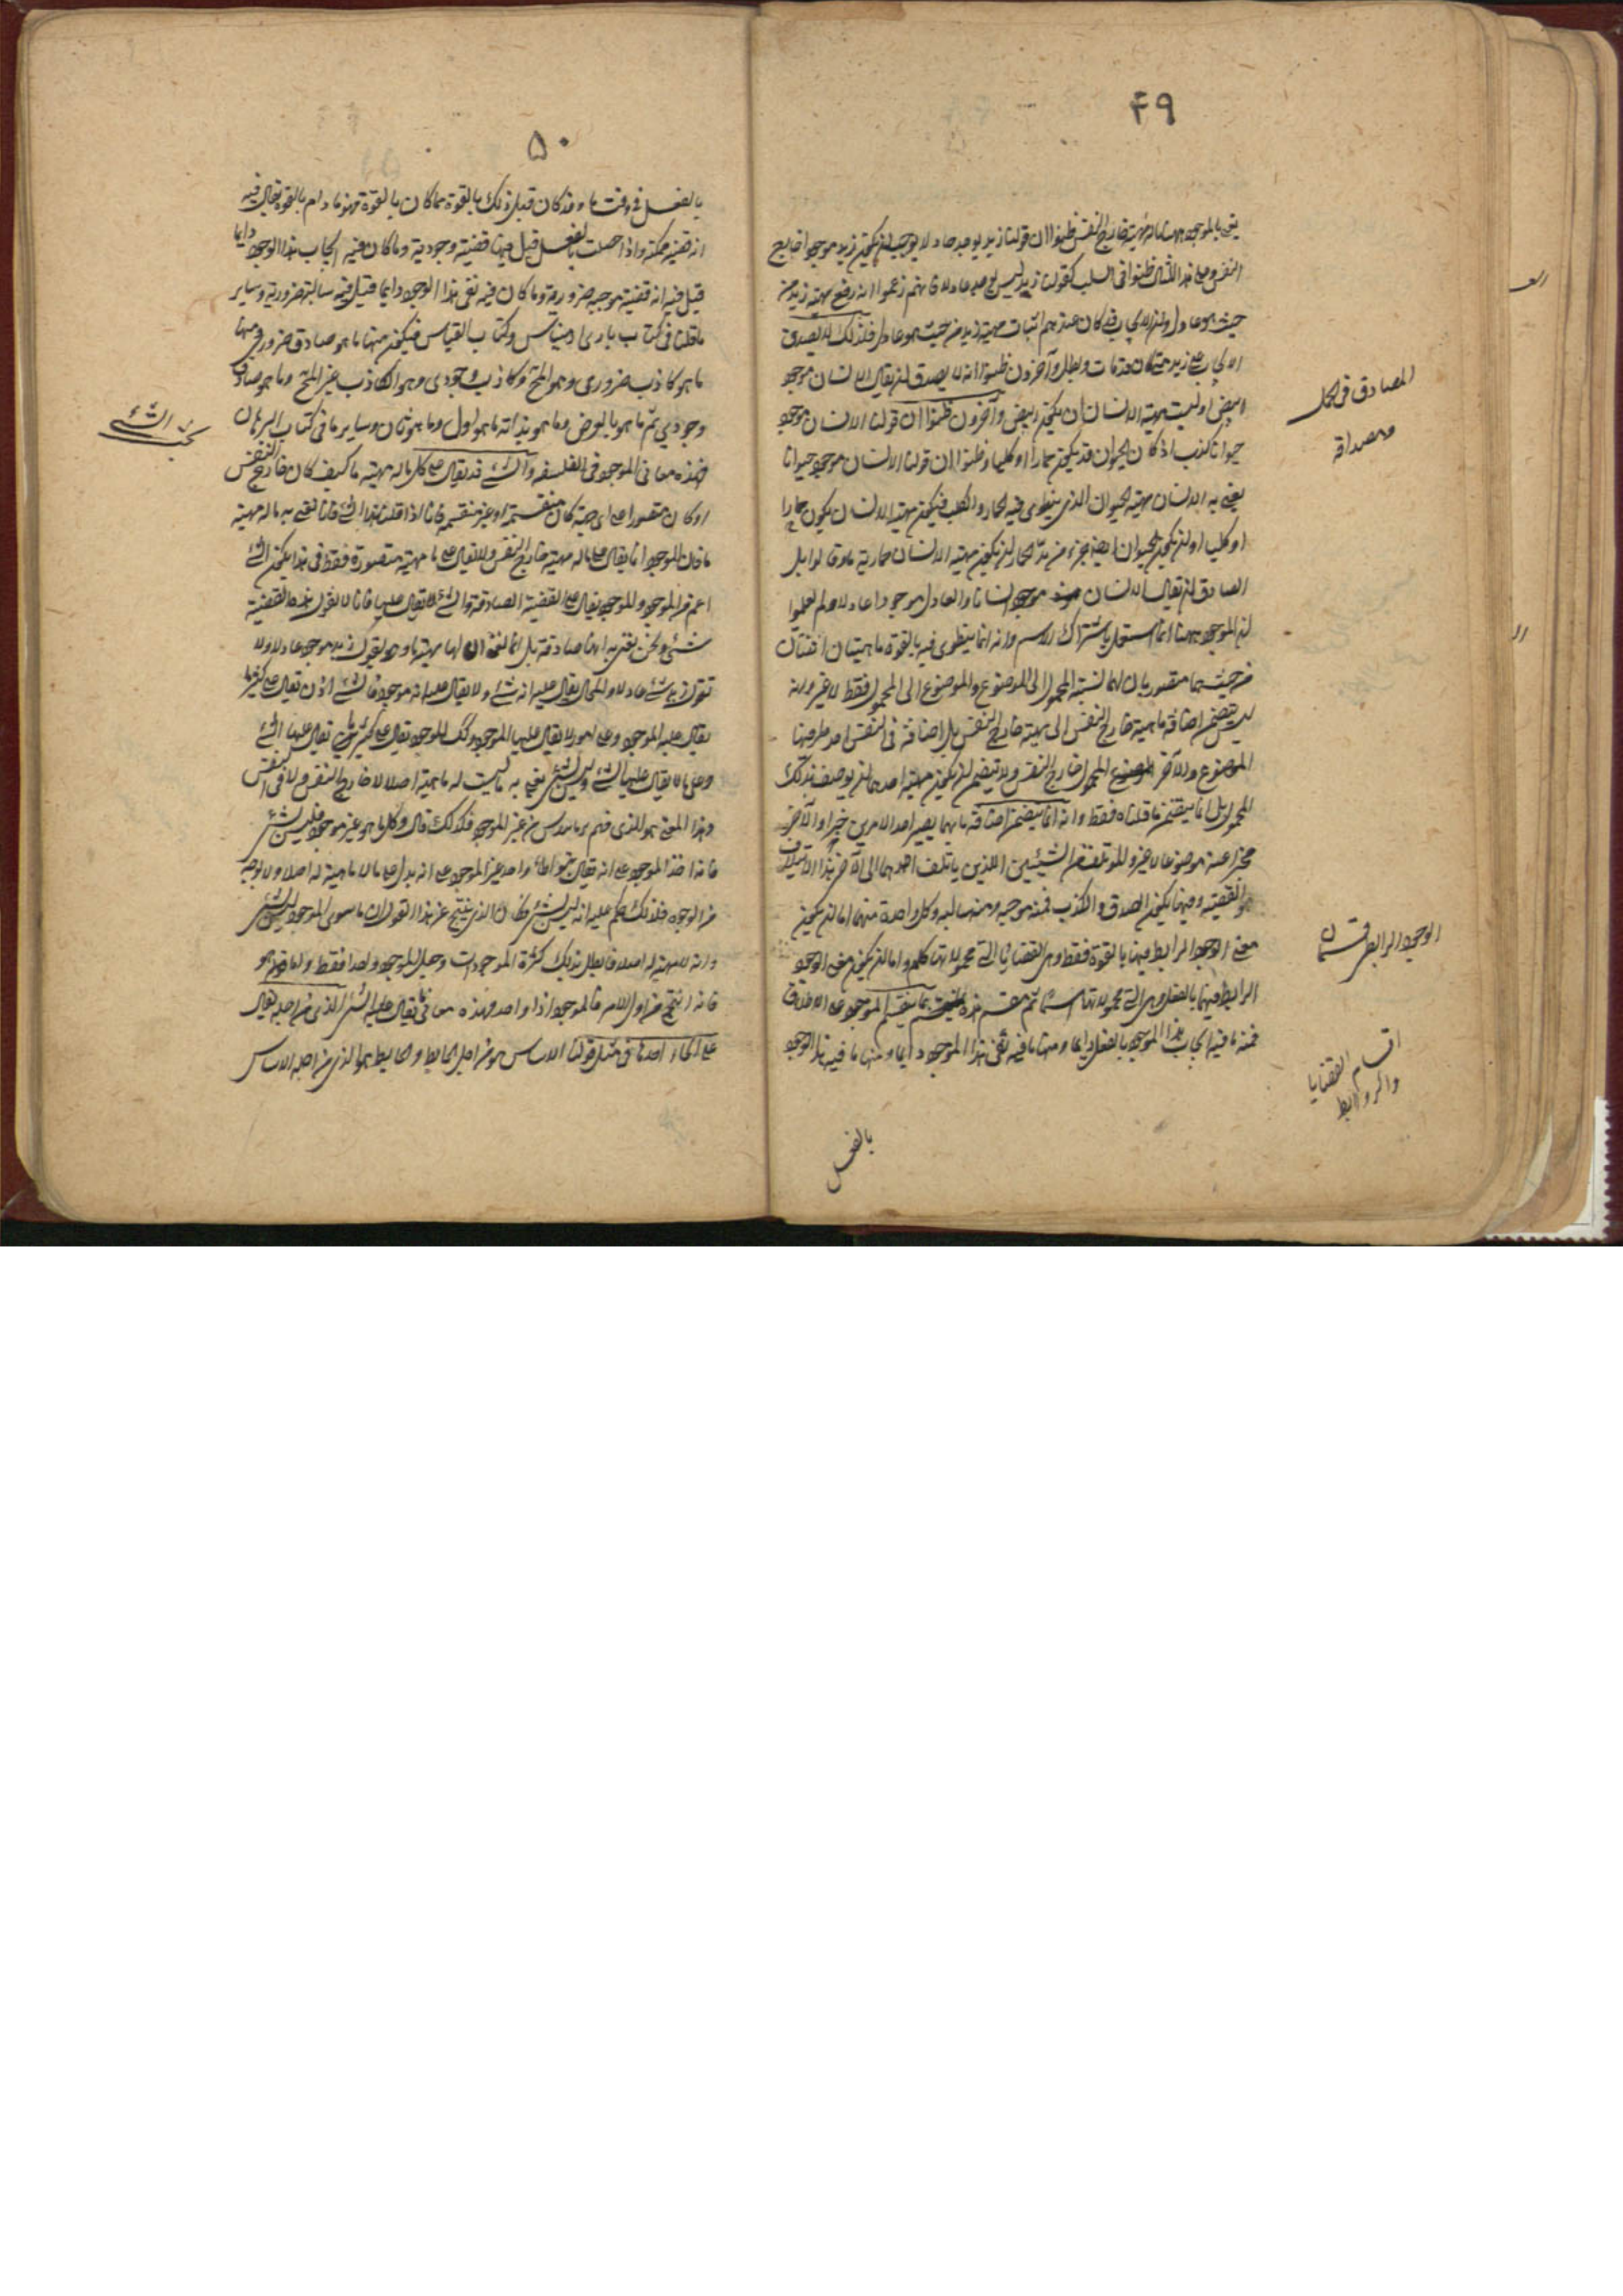 ۴۹
يعنى بالموجود ههنا ماله مهية خارج النفس ظنوا ان قولنا زيد يوجد عادلا يوجب ان يكون زيد موجودا خارج
النفس وعلى هذا المثال ظنوا فى السلب كقولنا زيد ليس يوجد عادلا فانهم زعموا انه رفع مهية زيد من
حيث هو عادل وان الايجاب كان عندهم اثبات مهية زيد من حيث هو عادل فلذلك لا يصدق
الايجاب على زيد متى كان قد مات وبطل وآخرون ظنوا انه لا يصدق ان يقال الانسان موجود
ابيض اذ ليست مهية الانسان ان يكون ابيض وآخرون ظنوا ان قولنا الانسان موجود
حيوانا كذب اذ كان الحيوان قد يكون حمارا او كلبا وظنوا ان قولنا الانسان موجود حيوانا
يعنى به الانسان مهية الحيوان الذى ينطوى فيه الحمار والكلب فيكون مهية الانسان يكون حمارا
او كلبا او ان يكون الحيوان ايضا جزء من حد الحمار ان يكون مهية الانسان حمارية ما وقالوا بل
الصادق ان يقال الانسان موجود انسانا والعادل موجودا عادلا ولم يعلموا
ان الموجود ههنا انما استعمل باشتراك الاسم وانه انما ينطوى فيه بالقوة ماهيتان اثنتان
من حيث هما متصوريان لهما نسبة المحمول الى الموضوع والموضوع الى المحمول فقط لا غير وانه
ليس يتضمن اضافة ماهية خارج النفس الى مهية خارج النفس بل اضافة فى النفس احد طرفيها
الموضوع والآخر المحمول خارج النفس ولا تتضمن ان يكون مهية احدهما ان يوصف بذلك
المحمول بل انما يتضمن ما قلناه فقط وانه انما يتضمن اضافة ما بها يصير احد الامرين خبرا والآخر
مخبرا عنه موضوعا لا غير والمؤتلف من الشيئين اللذين يأتلف احدهما الى الآخر هذا الائتلاف
هو القضية وفيها يكون الصدق والكذب فمنه موجبه ومنه سالبه وكل واحدة منهما اما ان يكون
معنى الوجود الرابط فيها بالقوة فقط وهى القضايا التى محمولاتها كلم واما ان يكون معنى الوجود
الرابط فيها بالفعل وهى التى محمولاتها اسما ثم تنقسم هذه بما ينقسم الموجود على الاطلاق
فمنه ما فيه ايجاب هذا الموجود بالفعل دايما ومنها ما فيه نفى هذا الموجود دايما ومنها ما فيه هذا الوجود
المصادق فى الحمل
ومصداقه
الوجود الرابط قسمان
اقسام القضايا
والروابط
بالفعل
۵۰
بالفعل فى وقت ما وقد كان قبل ذلك بالقوة فما كان بالقوة فهو ما دام بالقوة يقال فيه
انه قضيه ممكنة واذا حصلت بالفعل قيل فيها قضية وجودية وما كان فيه ايجاب هذا الوجود دايما
قيل فيه انه قضية موجبه ضرورية وما كان فيه نفى هذا الوجود دايما قيل فيه سالبة ضرورية وساير
ما قلنا فى كتاب بارى ارمينياس وكتاب القياس فيكون منها ما هو صادق ضرورى ومنها
ما هو كاذب ضرورى وهو المحال وكاذب وجودى وهو الكاذب غير المحال وما هو صادق
وجودى ثم ما هو بالعرض وما هو بذاته ما هو اول وما هو ثان وساير ما فى كتاب البرهان
فهذه معانى الموجود فى الفلسفه والشئ قد يقال على كل ما له مهية ما كيف كان خارج النفس
او كان متصورا على اى جهة كان منقسمة او غير منقسمه فانا اذا قلنا هذا الشئ فانا نعنى به ما له مهية
ما فان الموجود انما يقال على ما له مهية خارج النفس ولا يقال على ما مهية متصورة فقط فى هذا يكون الشئ
اعم من الموجود والموجود يقال على القضية الصادقة والشئ لا يقال عليها فانا لا نقول هذه القضية
شئ ونحن نعنى به انها صادقة بل انما نعنى ان لها مهية ما ونقول زيد موجود عادلا ولا
نقول زيد شئ عادلا والمحال يقال عليه انه شئ ولا يقال عليه انه موجود فالشئ اذن يقال على كثير مما
يقال عليه الموجود وعلى امور لا يقال عليها الموجود وكذلك الموجود يقال على كثير مما يقال عليها الشئ
وعلى ما لا يقال عليها الشئ وليس بشئ يعنى به ما ليست له ماهية اصلا لا خارج النفس ولا فى النفس
وهذا المعنى هو الذى فهم برمانيدس من غير الموجود فلذلك قال وكل ما هو غير موجود فليس بشئ
فانه اخذ الموجود على انه يقال بتواطأ واخذ غير الموجود على انه يدل على ما لا ماهية له اصلا ولا بوجه
من الوجوه فلذلك حكم عليه انه ليس بشئ فكان الذى ينتج عن هذا القول ان ما سوى الموجود ليس بشئ
وانه لا مهية له اصلا فابطل بذلك كثرة الموجودات وجعل الموجود واحدا فقط واما هو
فانه انتج من اول الامر فالموجود اذا واحد فهذه معانى ما يقال عليه الشئ الذى من اجله يقال
على انحاء احدها فى مثل قولنا الاساس هو من اجل الحايط والحايط هو الذى من اجله الاساس
بحث الشئ